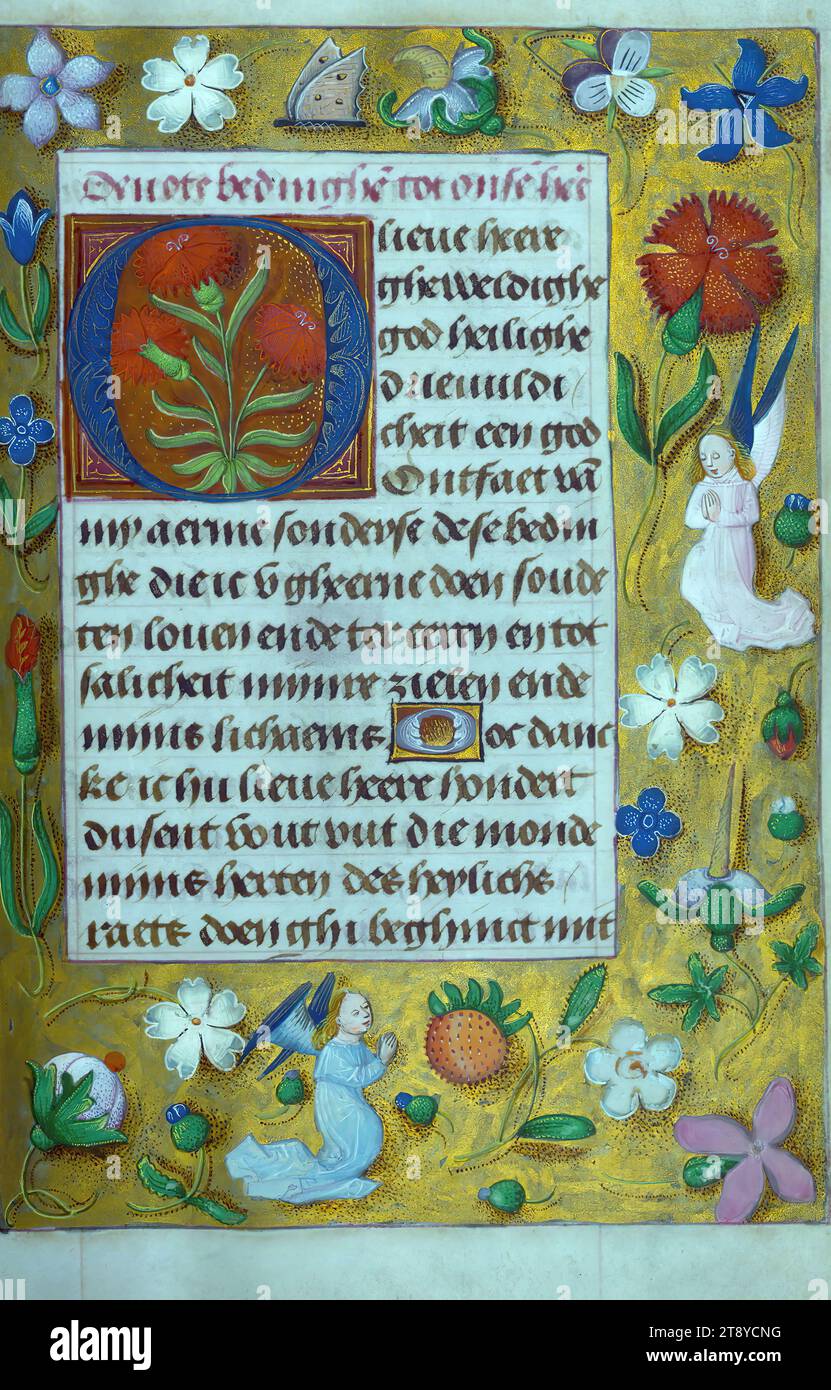 Deuote bedinghē tot onsē hēē
O lieue heere
gheweldighe
god heilighe
drieuuldi
cheit een god
Ontfaet vā
my aerme sonderse dese bedin
ghe die ic v gheerne doen soude
ten louen ende ter eeren en tot
salicheit mijnre zielen ende
mijns lichaems Ooc danc
ke ic hu lieue heere hondert
dusent vout vut die monde
mijns herten des heylichs
raets doen ghi beghinct mit
alamy
Image ID: 2T8YCNG
www.alamy.com